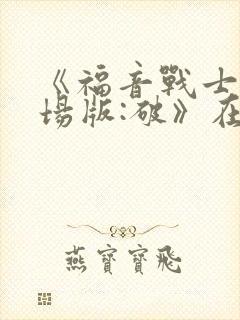 《福音戰士
場版:破》在
燕寶寶飛